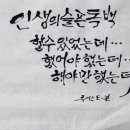 인생의 슬픈 독백
할 수 있었는데...
했어야 했는데...
해야만 했는데...